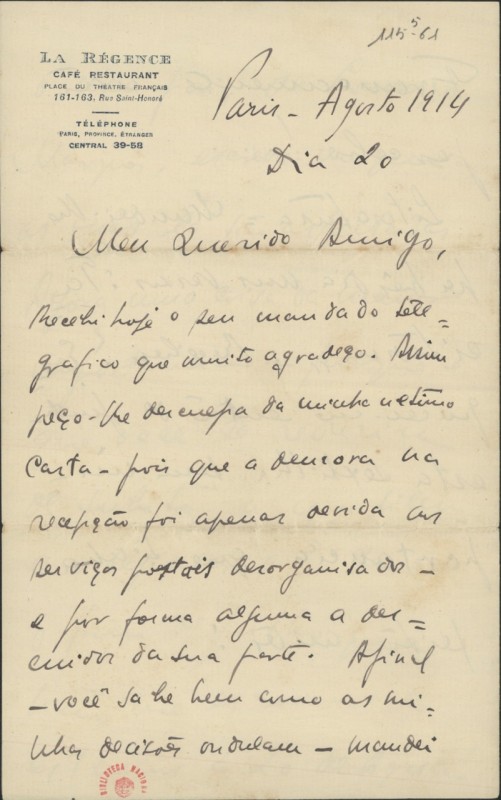 115⁵-61
LA RÉGENCE
CAFÉ RESTAURANT
PLACE DU THÉATRE FRANÇAIS
161-163, Rue Saint-Honoré
TÉLÉPHONE
PARIS, PROVINCE, ÉTRANGER
CENTRAL 39-58
Paris - Agosto 1914
Dia 20
Meu Querido Amigo,
Recebi hoje o seu mandado tele=
grafico que muito agradeço. Assim
peço-lhe desculpa da minha ultima
carta - pois que a demora na
recepção foi apenas devida aos
serviços postais desorganisados -
e por forma alguma a des=
cuidos da sua parte. Afinal
- você sabe bem como as mi=
nhas decisões ondulam - mandei
BIBLIOTECA NACIONAL